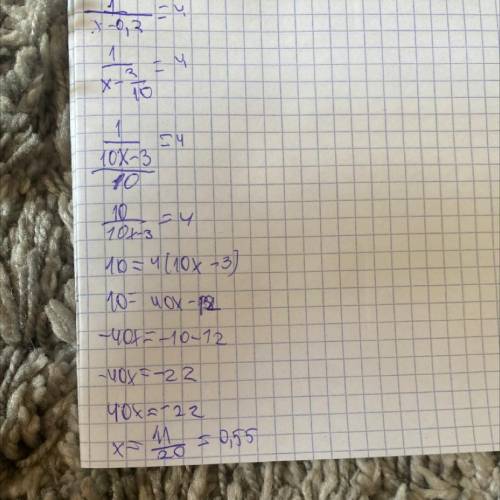 1/(x-0,3) = 4
1/(x-3/10) = 4
1/((10x-3)/10) = 4
10/(10x-3) = 4
10=4(10x-3)
10= 40x-12
-40x=-10-12
-40x=-22
40x=-22
x= 11/20 = 0,55